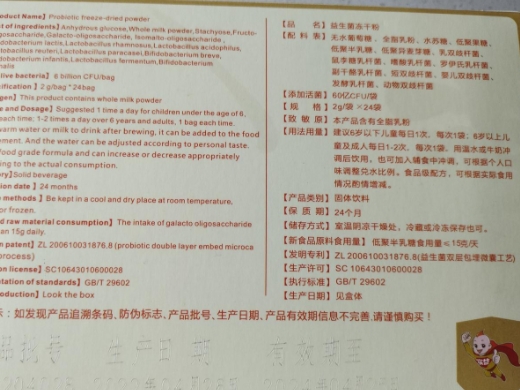 duct Name】Probiotic freeze-dried powder
t of ingredients】Anhydrous glucose,Whole milk powder,Stachyose,Fructo-
gosaccharide,Galacto-oligosaccharide, Isomalto-oligosaccharide ,
idobacterium lactis,Lactobacillus rhamnosus,Lactobacillus acidophilus,
tobacillus reuteri,Lactobacillus paracasei,Bifidobacterium breve,
obacterium infantis,Lactobacillus fermentum,Bifidobacterium
malis
ive bacteria】6 billion CFU/bag
ification】2 g/bag *24bag
gen】This product contains whole milk powder
e and Dosage】Suggested 1 time a day for children under the age of 6,
ach time: 1-2 times a day over 6 years and adults, 1 bag each time.
warm water or milk to drink after brewing, it can be added to the food
ement. And the water can be adjusted according to personal taste.
food grade formula and can increase or decrease appropriately
ng to the actual consumption.
ry】Solid beverage
tion date】24 months
e methods】Be kept in a cool and dry place at room temperature,
or frozen.
d raw material consumption】The intake of galacto oligosaccharide
han 15g daily.
n patent】ZL 200610031876.8 (probiotic double layer embed microca
process)
ion license】SC10643010600028
tation of standards】GB/T 29602
roduction】Look the box
【品 名】益生菌冻干粉
【配 料 表】无水葡萄糖、全脂乳粉、水苏糖、低聚果糖、
低聚半乳糖、低聚异麦芽糖、乳双歧杆菌、
鼠李糖乳杆菌、嗜酸乳杆菌、罗伊氏乳杆菌
副干酪乳杆菌、短双歧杆菌、婴儿双歧杆菌、
发酵乳杆菌、动物双歧杆菌
【添加活菌】60亿CFU/袋
【规 格】2g/袋 ×24袋
【致 敏 原】本产品含有全脂乳粉
【用法用量】建议6岁以下儿童每日1次、每次1袋；6岁以上儿
童及成人每日1-2次、每次1袋。用温水或牛奶冲
调后饮用，也可加入辅食中冲调，可根据个人口
味调整兑水比例。食品级配方，可根据实际食用
情况酌情增减。
【产品类别】固体饮料
【保 质 期】24个月
【储存方式】室温阴凉干燥处、冷藏或冷冻保存也可。
【新食品原料食用量】低聚半乳糖食用量≤15克/天
【发明专利】ZL 200610031876.8(益生菌双层包埋微囊工艺)
【生产许可】SC 10643010600028
【执行标准】GB/T 29602
【生产日期】见盒体
示：如发现产品追溯条码、防伪标志、产品批号、生产日期、产品有效期信息不完善，请谨慎购买！
品批号 生产日期